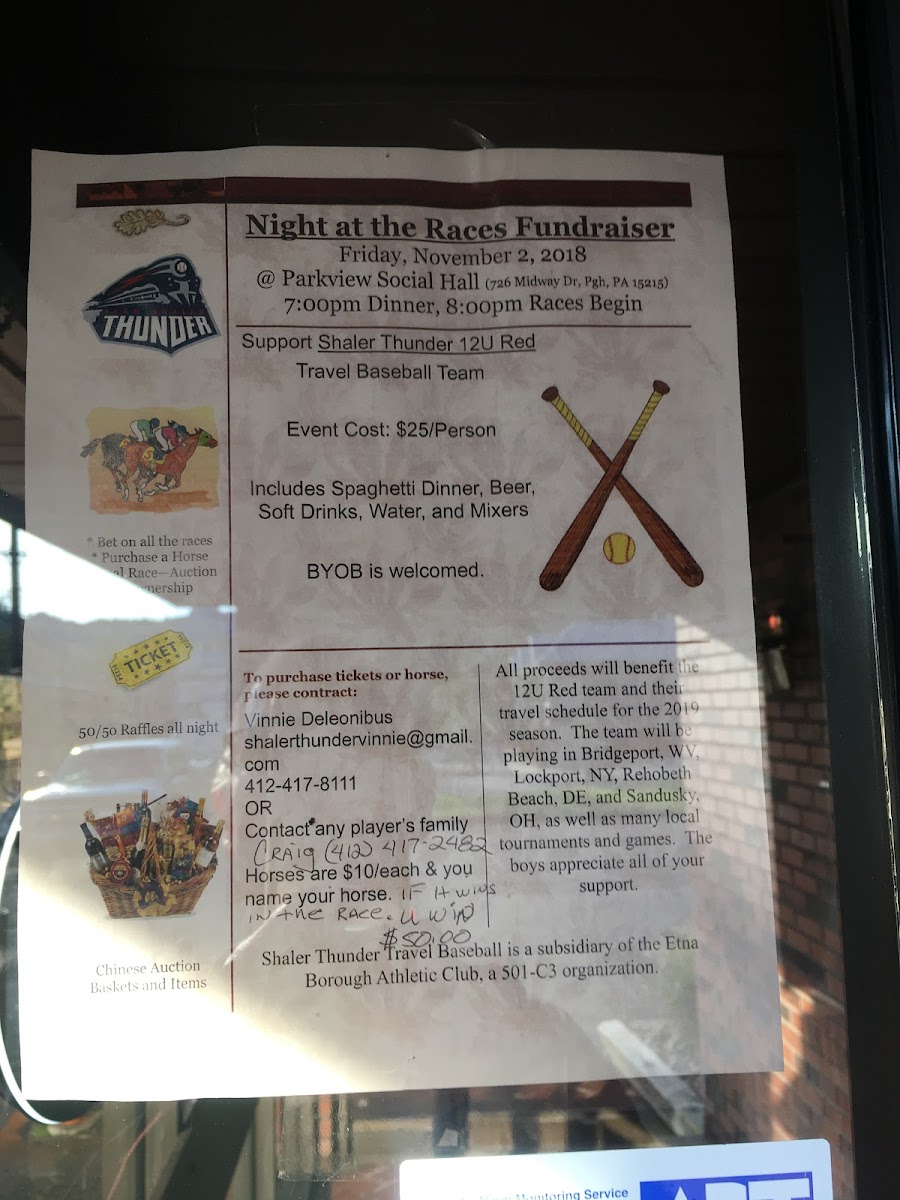 Night at the Races Fundraiser
Friday, November 2, 2018
@ Parkview Social Hall (726 Midway Dr, Pgh, PA 15215)
7:00pm Dinner, 8:00pm Races Begin
THUNDER
* Bet on all the races
* Purchase a Horse
al Race—Auction
nership
TICKET
50/50 Raffles all night
Chinese Auction
Baskets and Items
Support Shaler Thunder 12U Red
Travel Baseball Team
Event Cost: $25/Person
Includes Spaghetti Dinner, Beer,
Soft Drinks, Water, and Mixers
BYOB is welcomed.
To purchase tickets or horse,
please contract:
Vinnie Deleonibus
shalerthundervinnie@gmail.
com
412-417-8111
OR
Contact any player's family
CRAIG (412) 417-2482
Horses are $10/each & you
name your horse. IF it wins
in the RACE. U WIN
$50.00
All proceeds will benefit the
12U Red team and their
travel schedule for the 2019
season. The team will be
playing in Bridgeport, WV,
Lockport, NY, Rehobeth
Beach, DE, and Sandusky,
OH, as well as many local
tournaments and games. The
boys appreciate all of your
support.
Shaler Thunder Travel Baseball is a subsidiary of the Etna
Borough Athletic Club, a 501-C3 organization.
Monitoring Service
ADT